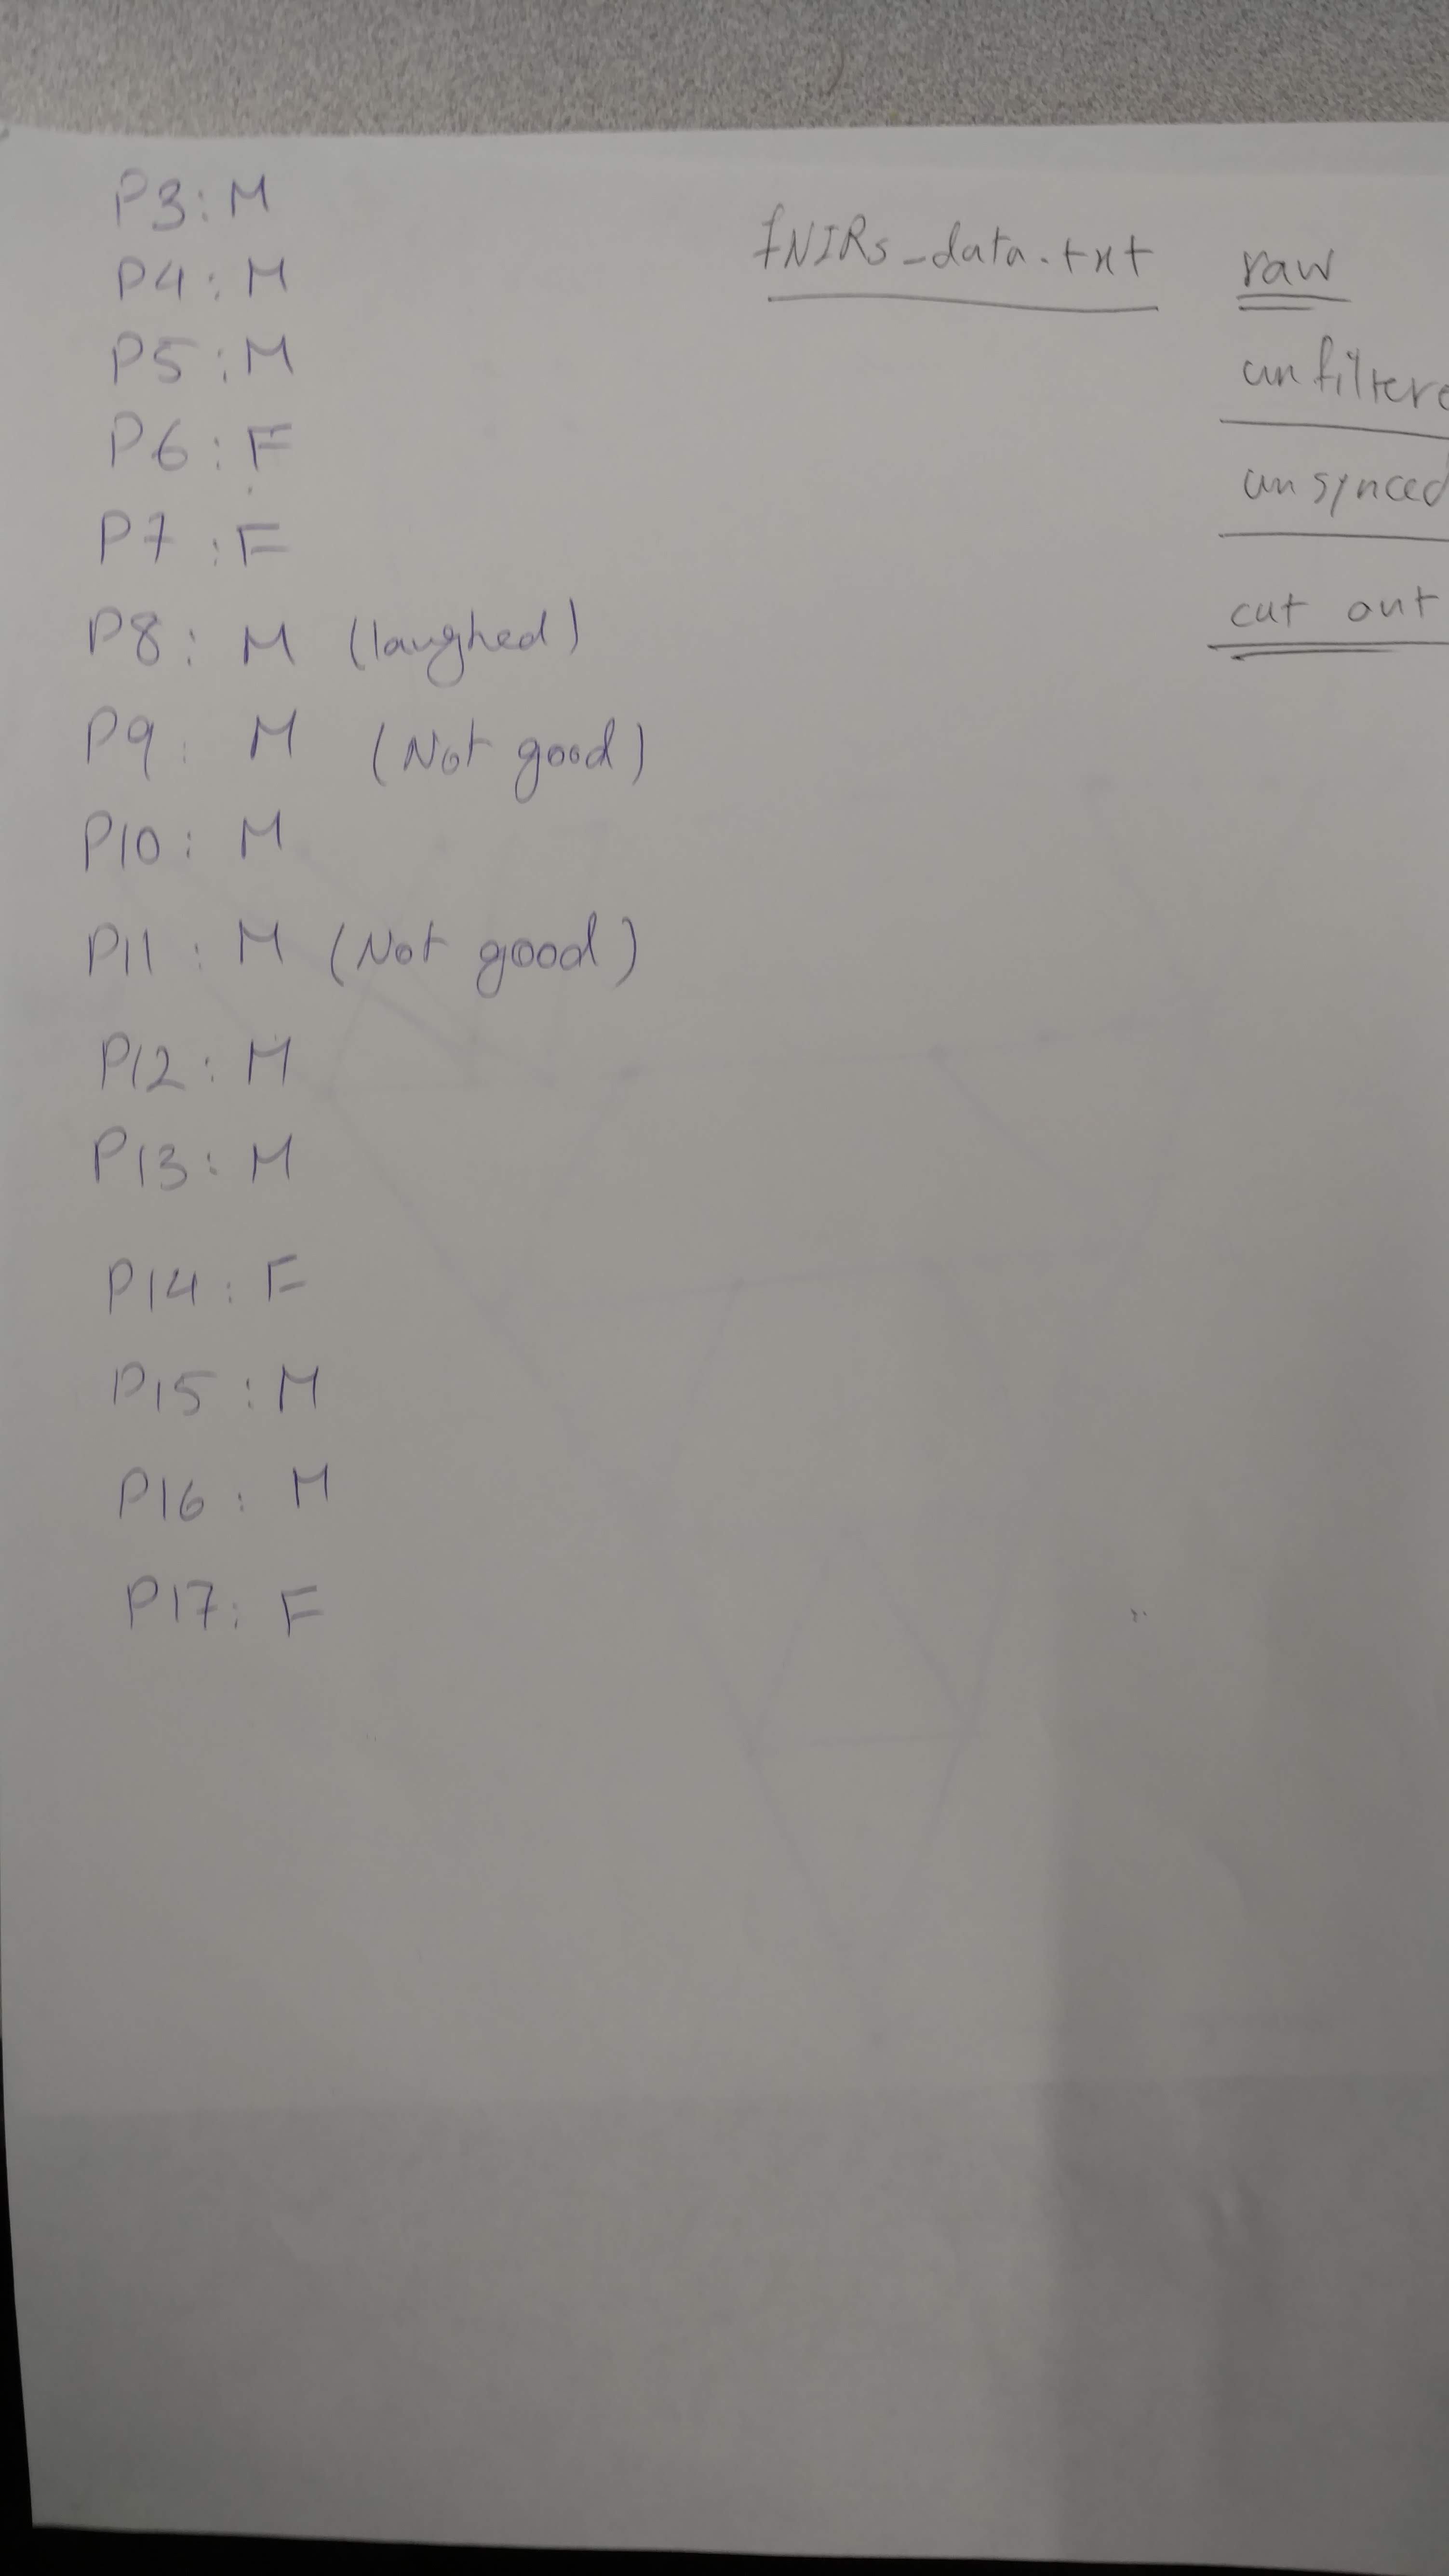 P3: M
P4: M
P5: M
P6: F
P7: F
P8: M (laughed)
P9: M (Not good)
P10: M
P11: M (Not good)
P12: M
P13: M
P14: F
P15: M
P16: M
P17: F
fNIRs_data.txt raw
unfiltere
unsynced
cut out